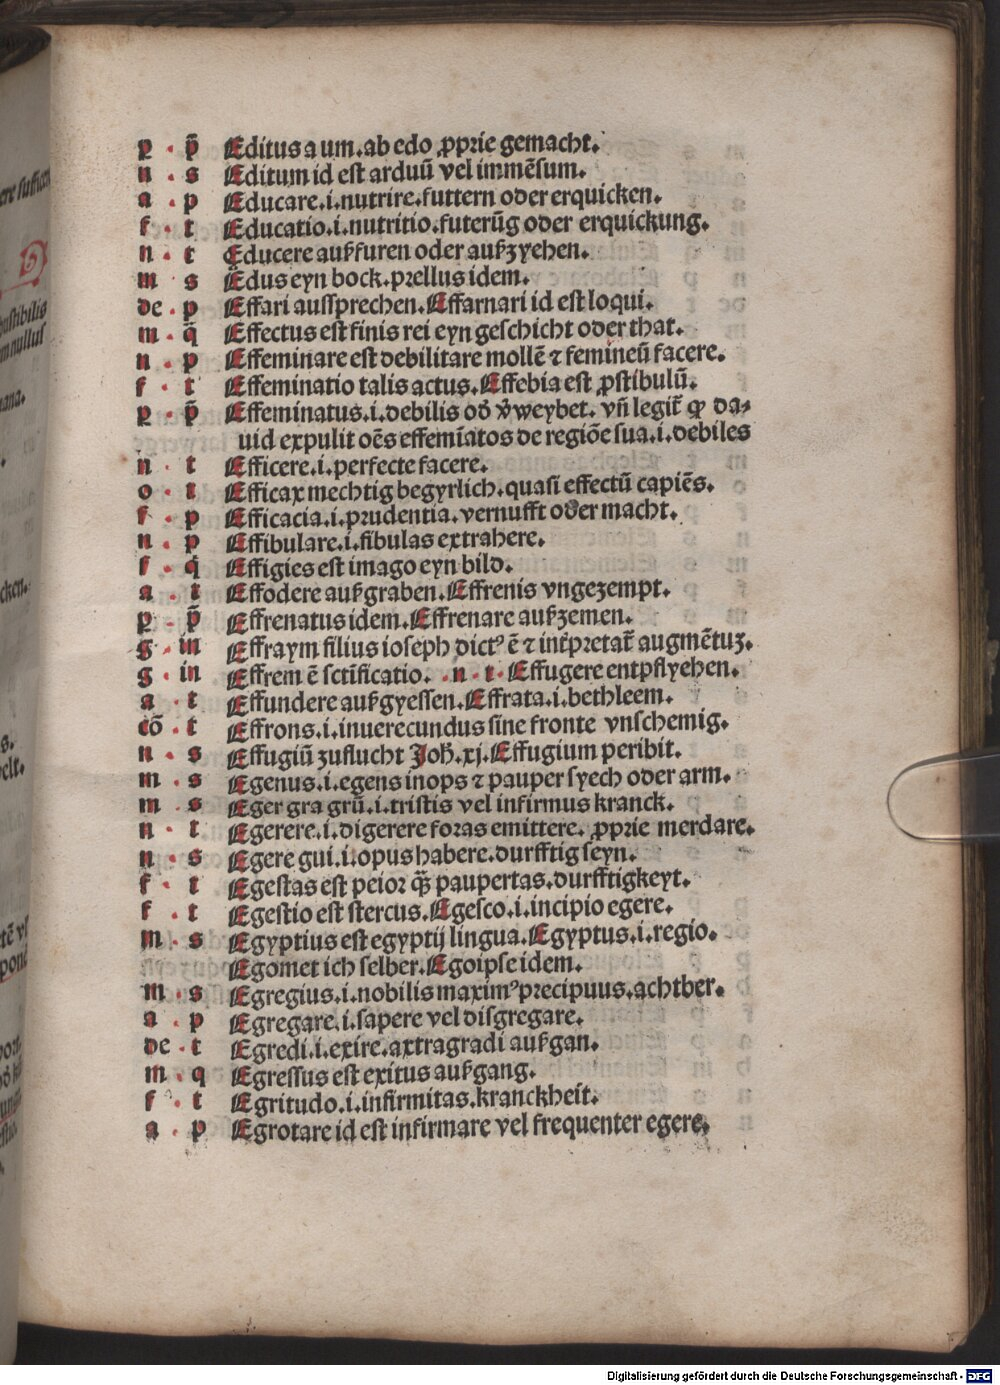 p · p̄ Editus a um. ab edo ꝓprie gemacht.
n · s Editum id est arduū vel immēsum.
a · p Educare .i. nutrire. futtern oder erquicken.
f · t Educatio .i. nutritio. futerūg oder erquickung.
n · t Educere außfuren oder außzyehen.
m · s Edus eyn bock. prellus idem.
de · p Effari aussprechen. Effarnari id est loqui.
m · q̄ Effectus est finis rei eyn geschicht oder that.
n · p Effeminare est debilitare mollē ⁊ femineū facere.
f · t Effeminatio talis actus. Effebia est ꝓstibulū.
p · p̄ Effeminatus .i. debilis od̓ v̓weybet. vn̄ legit̄ ꝙ da⸗
uid expulit oēs effemīatos de regiōe sua .i. debiles
n · t Efficere .i. perfecte facere.
o · t Efficax mechtig begyrlich. quasi effectū capiēs.
f · p Efficacia .i. prudentia. vernufft oder macht.
n · p Effibulare .i. fibulas extrahere.
f · q̄ Effigies est imago eyn bild.
a · t Effodere außgraben. Effrenis vngezempt.
p · p̄ Effrenatus idem. Effrenare außzemen.
g · in Effraym filius ioseph dictꝰ ē ⁊ int̓pretat̄ augmētuz.
g · in Effrem ē sctīficatio. · n · t · Effugere entpflyehen.
a · t Effundere außgyessen. Effrata .i. bethleem.
cō · t Effrons .i. inuerecundus sine fronte vnschemig.
n · s Effugiū zuflucht Joh̄. xj. Effugium peribit.
m · s Egenus .i. egens inops ⁊ pauper syech oder arm.
m · s Eger gra grū .i. tristis vel infirmus kranck.
n · t Egerere .i. digerere foras emittere. ꝓprie merdare.
n · s Egere gui .i. opus habere. durfftig seyn.
f · t Egestas est peior qȝ̄ paupertas. durfftigkeyt.
f · t Egestio est stercus. Egesco .i. incipio egere.
m · s Egyptius est egyptij lingua. Egyptus .i. regio.
Egomet ich selber. Egoipse idem.
m · s Egregius .i. nobilis maximꝰ precipuus. achtber.
a · p Egregare .i. sapere vel disgregare.
de · t Egredi .i. exire. axtragradi außgan.
m · q Egressus est exitus außgang.
f · t Egritudo .i. infirmitas. kranckheit.
a · p Egrotare id est infirmare vel frequenter egere.
Digitalisierung gefördert durch die Deutsche Forschungsgemeinschaft - DFG